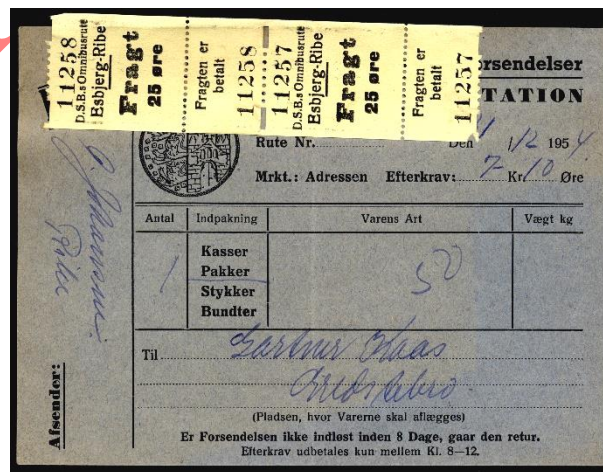 11258
D.S.B.s Omnibusrute
Esbjerg-Ribe
Fragt
25 øre
Fragten er
betalt
11258
11257
D.S.B.s Omnibusrute
Esbjerg-Ribe
Fragt
25 øre
Fragten er
betalt
11257
orsendelser
TATION
Rute Nr. Den 1/12 1954
Mrkt.: Adressen Efterkrav: 7 Kr. 10 Øre
Antal Indpakning Varens Art Vægt kg
Kasser
1 Pakker 50
Stykker
Bundter
Til Gartner Kaas
Gredstedbro
(Pladsen, hvor Varerne skal aflægges)
Er Forsendelsen ikke indløst inden 8 Dage, gaar den retur.
Efterkrav udbetales kun mellem Kl. 8—12.
Afsender:
Ribe